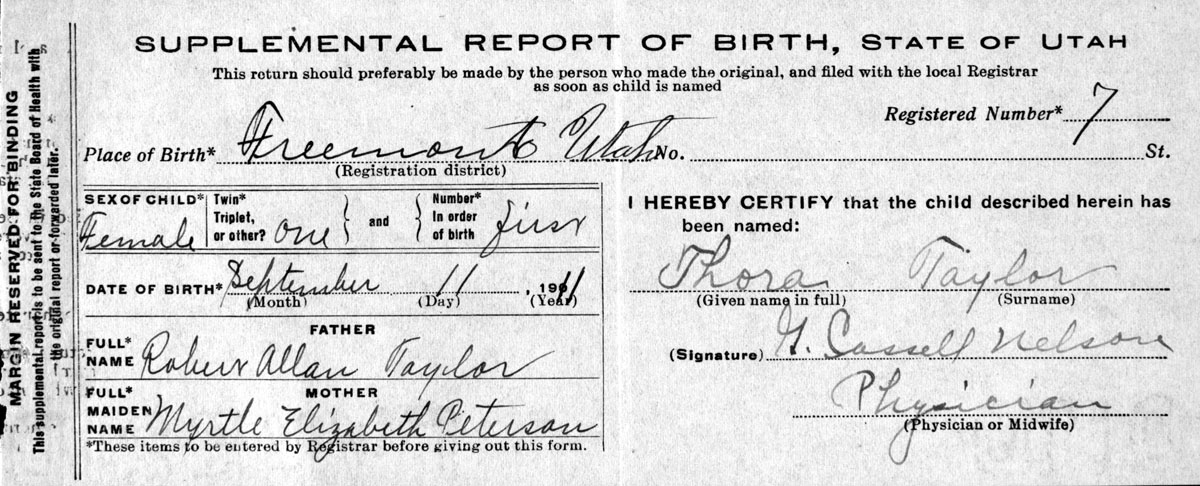 SUPPLEMENTAL REPORT OF BIRTH, STATE OF UTAH
This return should preferably be made by the person who made the original, and filed with the local Registrar
as soon as child is named
Registered Number* 7
Place of Birth* Freemont Utah No. St.
(Registration district)
SEX OF CHILD* Female
Twin* Triplet, or other? one } and { Number* In order of birth first
DATE OF BIRTH* September 11, 1911
(Month) (Day) (Year)
FATHER
FULL* NAME Robert Allan Taylor
MOTHER
FULL* MAIDEN NAME Myrtle Elizabeth Peterson
*These items to be entered by Registrar before giving out this form.
I HEREBY CERTIFY that the child described herein has
been named:
Thora Taylor
(Given name in full) (Surname)
(Signature) G. Cassell Nelson
Physician
(Physician or Midwife)
MARGIN RESERVED FOR BINDING
This supplemental report is to be sent to the State Board of Health with
the original report or forwarded later.